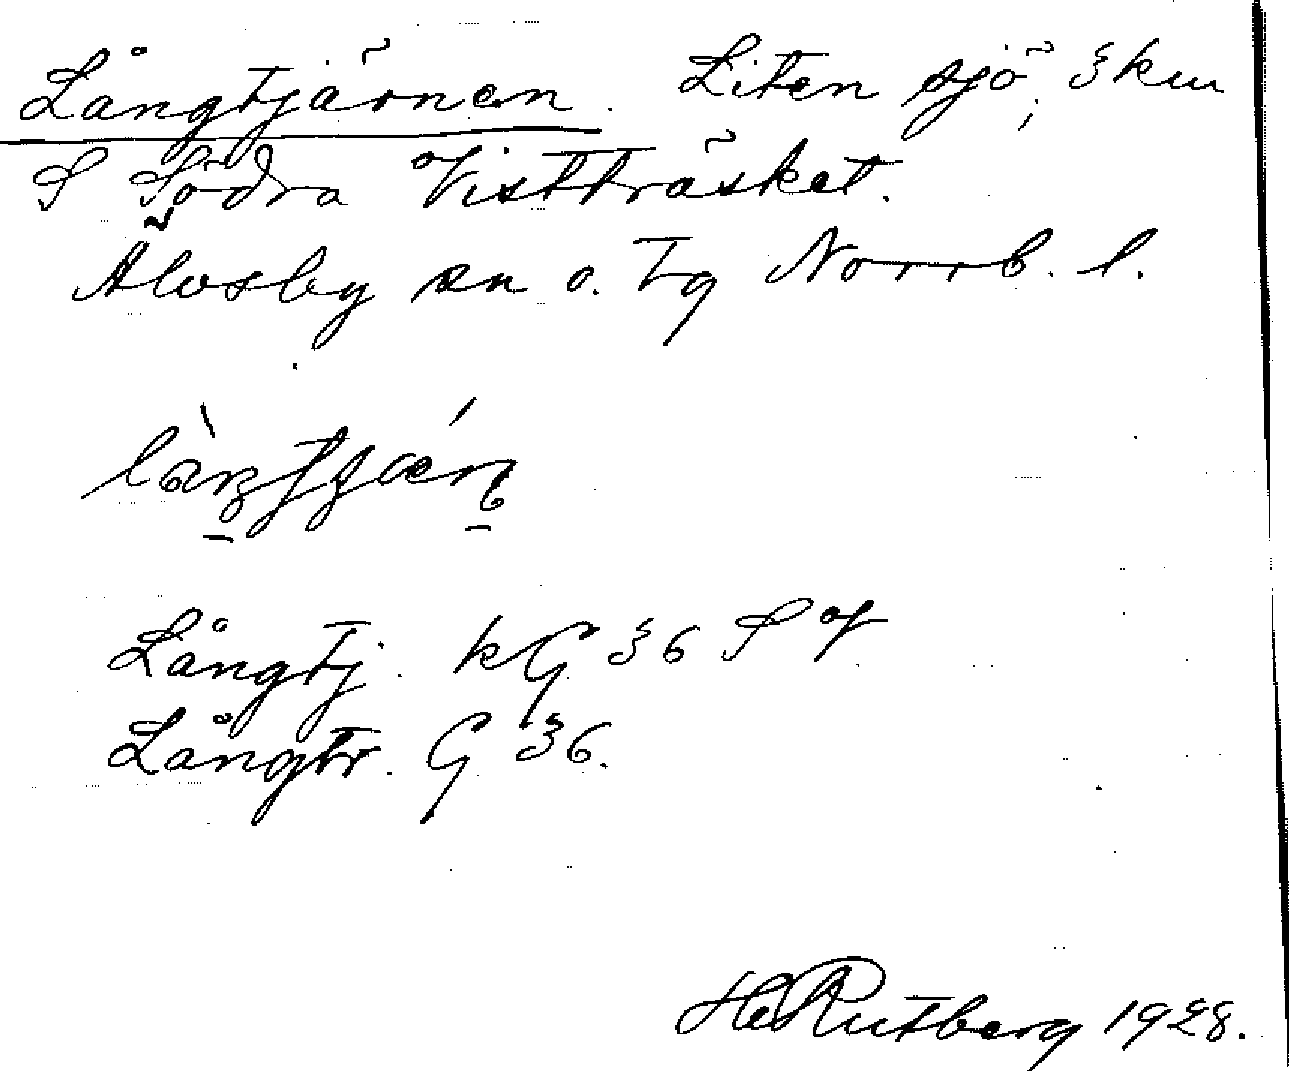 Långtjärnen. Liten sjö, 3 km
S Södra Vistträsket.
Älvsby sn o. tg Norrb. l.
Långtj. kG 36 S V
Långtr. G 36.
H Rutberg 1928.